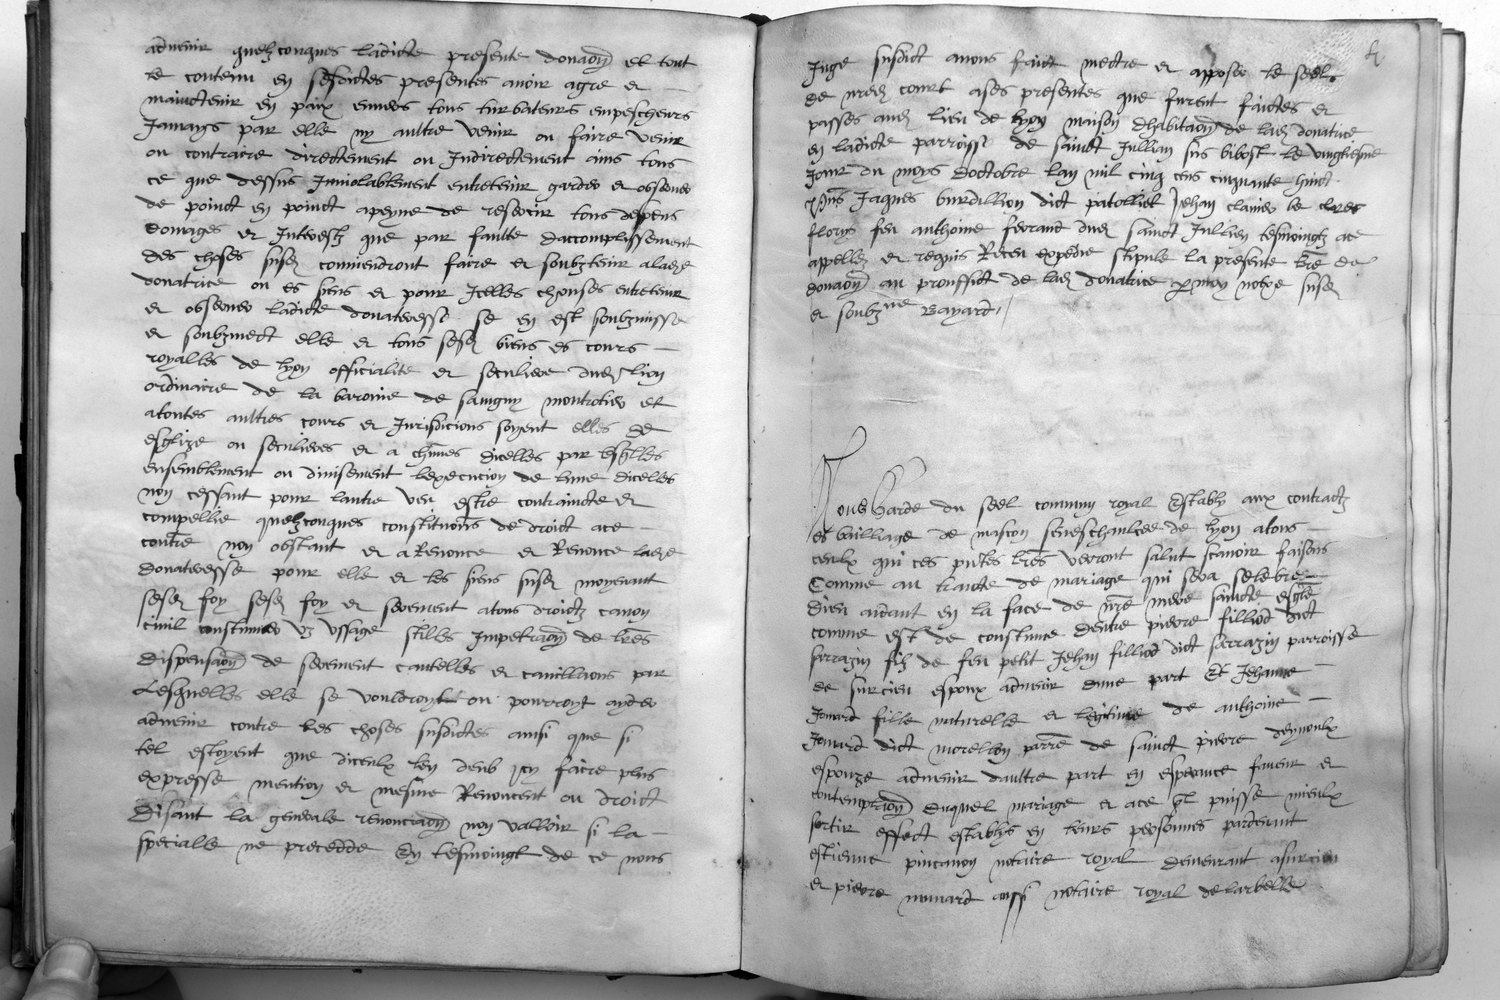 advenir quelzconques ladicte presente donaon et tout
le contenu en sesdictes presentes avoir agre et
mainctenir en paix envers tous turbateurs empescheurs
Jamays par elle ny aultre venir ou faire venir
ou contraire directement ou Indirectement ains tous
ce que dessus Inviolablement entretenir garder et observer
de poinct en poinct apeyne de resercir tous despens
domages et Interestz que par faulte daccomplissement
des choses susd conviendront faire et soubztenir a lade
donatrice ou es siens et pour Icelles choses entretenir
et observer ladicte donateresse se en est soubzmisse
et soubzmect elle et tous sesd biens es cours
royalles de lyon officialite et seculiere dud lion
ordinaire de la baronie de savigny montrotier et
atoutes aultres cours et Jurisdicions soyent elles de
esglize ou seculieres et a chunes dicelles par lesqlles
ensemblement ou divisement lexecucion de lune dicelles
non cessant pour laultre veu estre contraincte et
compellie quelzconques constitutions de droict ace
contre non obstant et a Renonce et Renonce lade
donateresse pour elle et les siens susd moyenant
sesd foy sesd foy et serement atous droictz canon
civil constumes uz ussage stilles Impetraon de lres
dispensaon de serement cautelles et cavillaons par
Lesquelles elle se vouldroyt ou pourroyt ayder
advenir contre les choses susdictes ainsi que si
tel estoyent que diceulx len deub icy faire plus
expresse mention et mesme Renoncent ou droict
disant la generale renonciaon non valloir si la
specialle ne precedde En tesmoingt de ce nous
Juge susdict avons faict mectre et apposer le seel
de nred court ases presentes que furent faictes et
passes aud lieu de lyon maison dhabitaon de lad donatrice
en ladicte parroisse de sainct Jullian sus bibost le vinghiesme
Jour du moys doctobre lan mil cinq cens cinquante huict
pns Jaques burdillion dict patolliet Jehan clavier le clres
floris feu anthoine ferrand dud sainct Jullien tesmoingtz ace
appelles et requis Receu expedie stipule la presente lre de
donaon au prouffict de lad donatrice p moy notre susd
et soubzne Bayard
Nous Garde du seel commun royal Estably aux contractz
es bailliage de mascon seneschaulcee de lyon atous
ceulx qui ces pntes lres verront salut scavoir faisons
Comme au traicte de mariage qui sera selebre
dieu aidant en la face de nre mere saincte esgle
comme est de constume Dentre pierre filliod dict
sarrazin filz de feu petit Jehan filliod dict sarrazin parroisse
de surcieu espoux advenir dune part Et Jehanne
Jouard fille naturelle et legitime de anthoine
Jouard dict morellon parre de sainct pierre
espouze advenir daultre part en esperance faveur et
contemplaon duquel mariage et ace ql puisse mieulx
sortir effect establys en leurs personnes pardevant
estienne pincanon notaire royal demeurant asurcieu
et pierre monard aussi notaire royal de larbelle